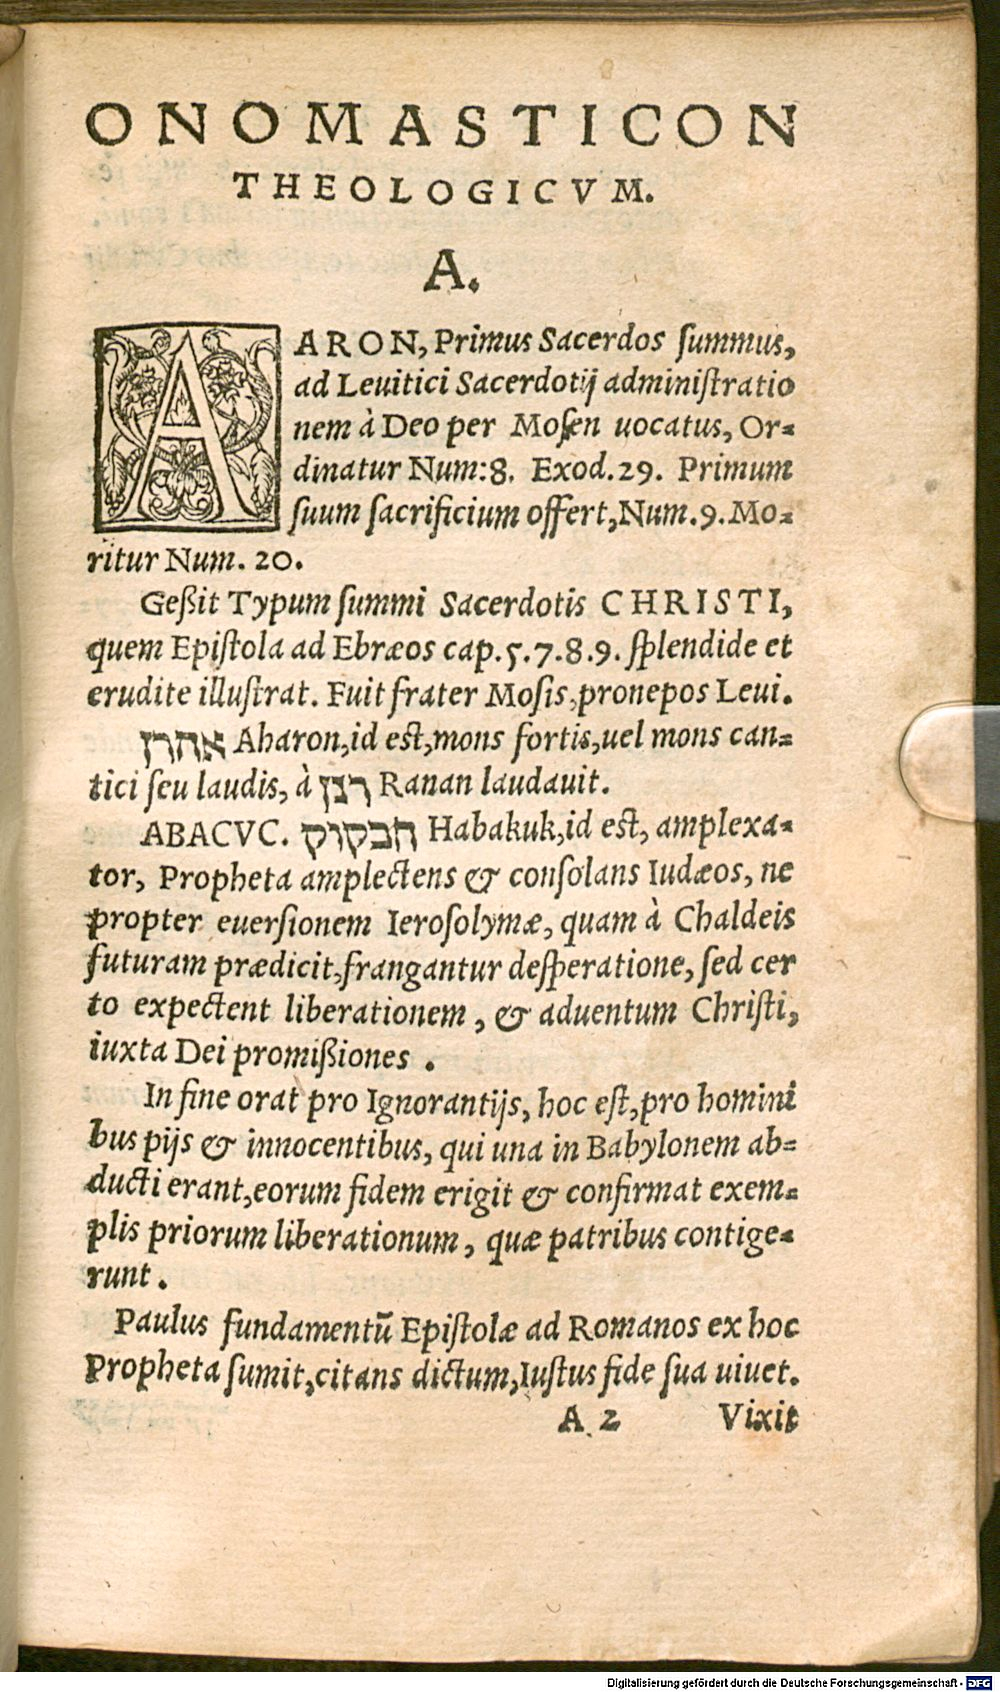 ONOMASTICON
THEOLOGICVM.
A.
AARON, Primus Sacerdos ſummus,
ad Leuitici Sacerdotij adminiſtratio
nem à Deo per Moſen uocatus, Or-
dinatur Num: 8. Exod. 29. Primum
ſuum ſacrificium offert, Num. 9. Mo-
ritur Num. 20.
Geßit Typum ſummi Sacerdotis CHRISTI,
quem Epiſtola ad Ebræos cap. 5. 7. 8. 9. ſplendide et
erudite illuſtrat. Fuit frater Moſis, pronepos Leui.
אהרן Aharon, id eſt, mons fortis, uel mons can-
tici ſeu laudis, à רנן Ranan laudauit.
ABACVC. חבקוק Habakuk, id eſt, amplexa-
tor, Propheta amplectens & conſolans Iudæos, ne
propter euerſionem Ieroſolymæ, quam à Chaldeis
futuram prædicit, frangantur deſperatione, ſed cer
to expectent liberationem, & aduentum Chriſti,
iuxta Dei promißiones.
In fine orat pro Ignorantijs, hoc eſt, pro homini
bus pijs & innocentibus, qui una in Babylonem ab-
ducti erant, eorum fidem erigit & confirmat exem-
plis priorum liberationum, quæ patribus contige-
runt.
Paulus fundamentū Epiſtolæ ad Romanos ex hoc
Propheta ſumit, citans dictum, Iuſtus fide ſua uiuet.
A 2 Vixit
Digitalisierung gefördert durch die Deutsche Forschungsgemeinschaft - DFG